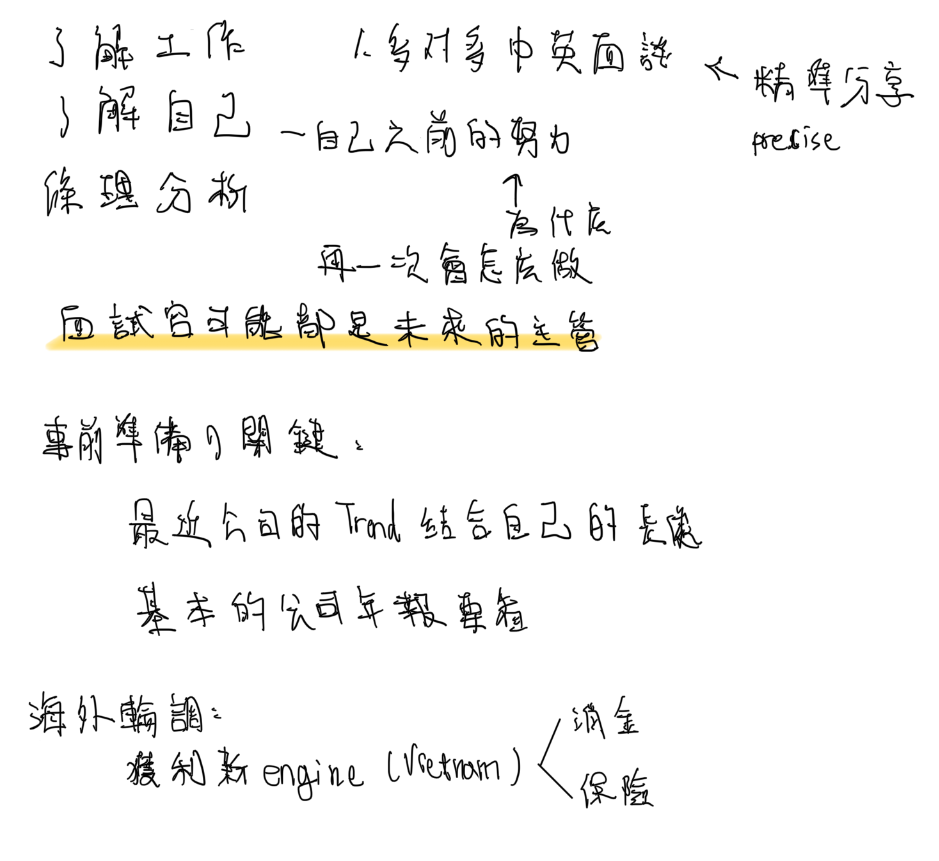 了解工作
1. 多对多中英面談 ← 精準分享
precise
了解自己 - 自己之前的努力
條理分析
↑
為什広
再一次會怎広做
面試官可能都是未來的主管
事前準備の關鍵：
最近公司的 Trend 结合自己的長處
基本的公司年報
海外輪調：
獲利新 engine (Vietnam)
消金
保險